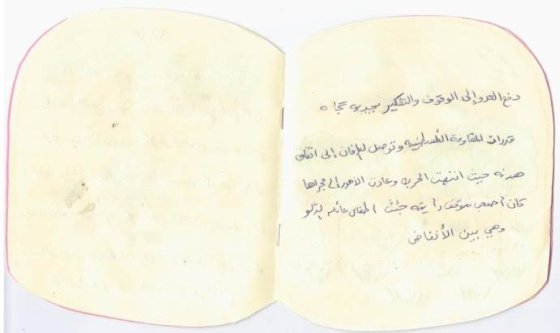 دفع العدو إلى الوقوف والتفكير بجدية تجاه
قدرات المقاومة الفلسطينية وتوصل الطرفان إلى اتفاق
هدنة حيث انتهت الحرب وعادت الأمور إلى مجراها
كان أصعب موقف رأيته جثث أطفال عائلة الدلو
وهي بين الأنقاض